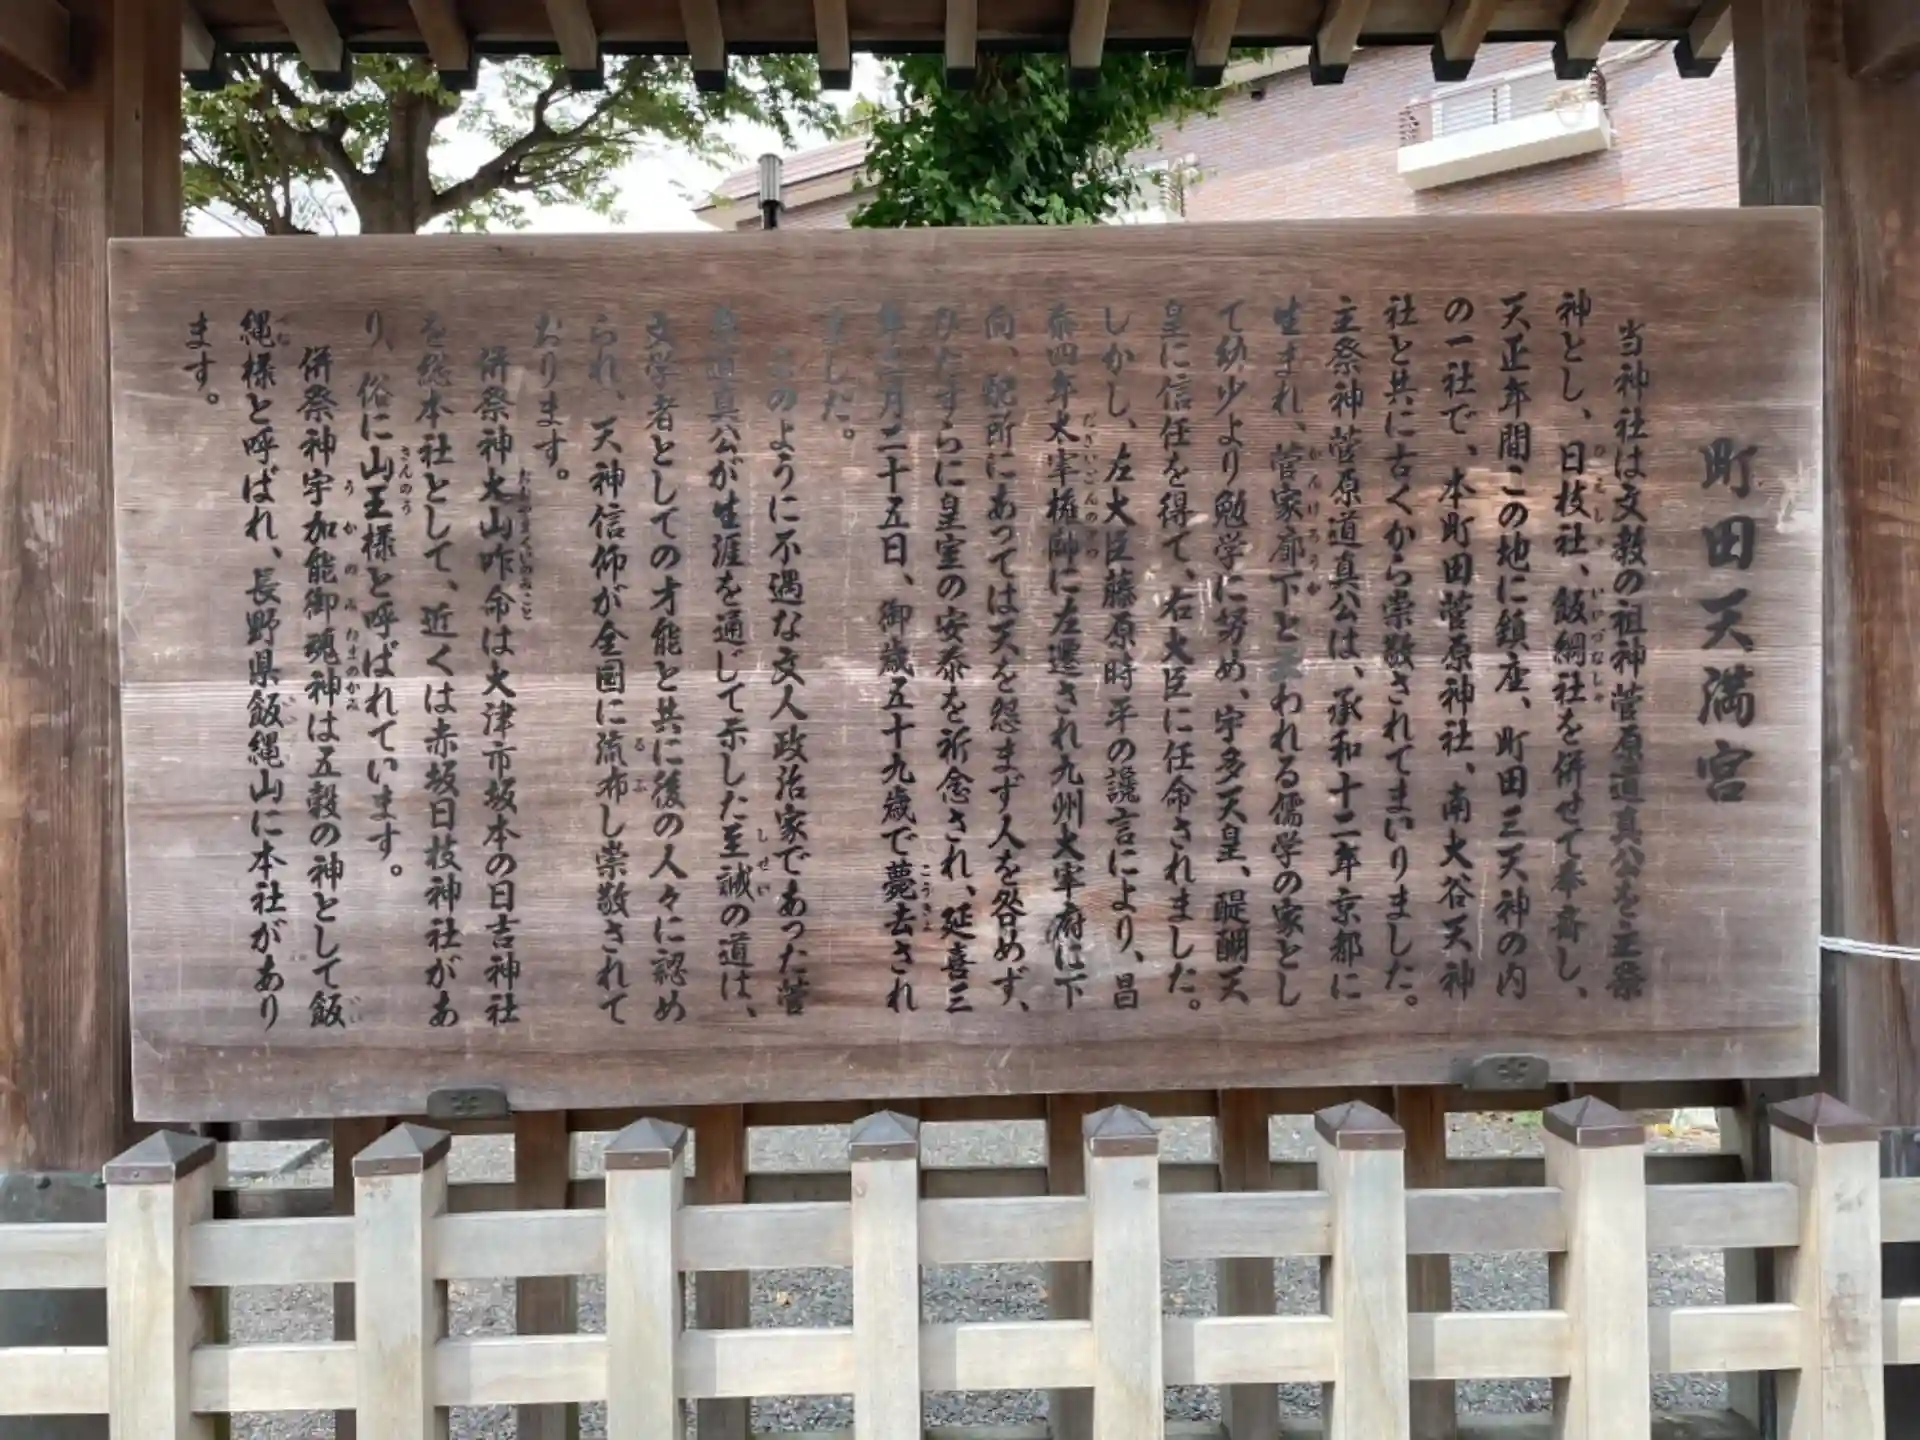 町田天満宮
当神社は文教の祖神菅原道真公を主祭
神とし、日枝社、飯綱社を併せて奉斎し、
天正年間この地に鎮座、町田三天神の内
の一社で、本町田菅原神社、南大谷天神
社と共に古くから崇敬されてまいりました。
主祭神菅原道真公は、承和十二年京都に
生まれ、菅家廊下と云われる儒学の家とし
て幼少より勉学に努め、宇多天皇、醍醐天
皇に信任を得て、右大臣に任命されました。
しかし、左大臣藤原時平の讒言により、昌
泰四年大宰権帥に左遷され九州大宰府に下
向、配所にあっては天を怨まず人を咎めず、
ひたすらに皇室の安泰を祈念され、延喜三
年二月二十五日、御歳五十九歳で薨去され
ました。
このように不遇な文人政治家であった菅
原道真公が生涯を通じて示した至誠の道は、
文学者としての才能と共に後の人々に認め
られ、天神信仰が全国に流布し崇敬されて
おります。
併祭神大山咋命は大津市坂本の日吉神社
を総本社として、近くは赤坂日枝神社があ
り、俗に山王様と呼ばれています。
併祭神宇加能御魂神は五穀の神として飯
縄様と呼ばれ、長野県飯縄山に本社があり
ます。